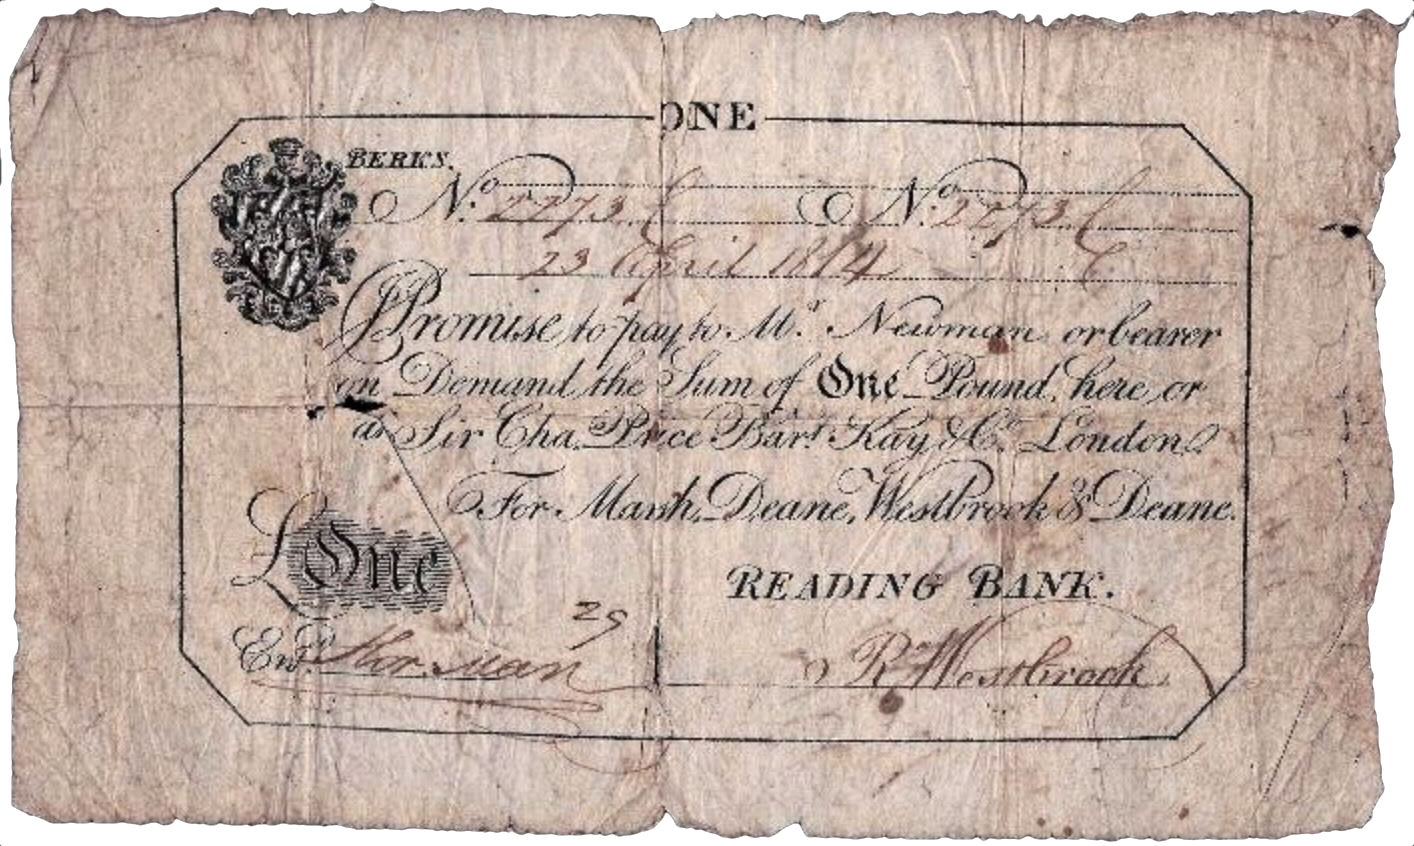 ONE
BERKS.
No. 2273 No. 2273
23 April 1814
I Promise to pay to Mr. Newman or bearer
on Demand the Sum of One Pound, here or
at Sir Cha. Price Bart. Kay & Co. London
For Marsh, Deane, Westbrook & Deane.
£One
READING BANK.
29
Entd. Rd. Westbrook